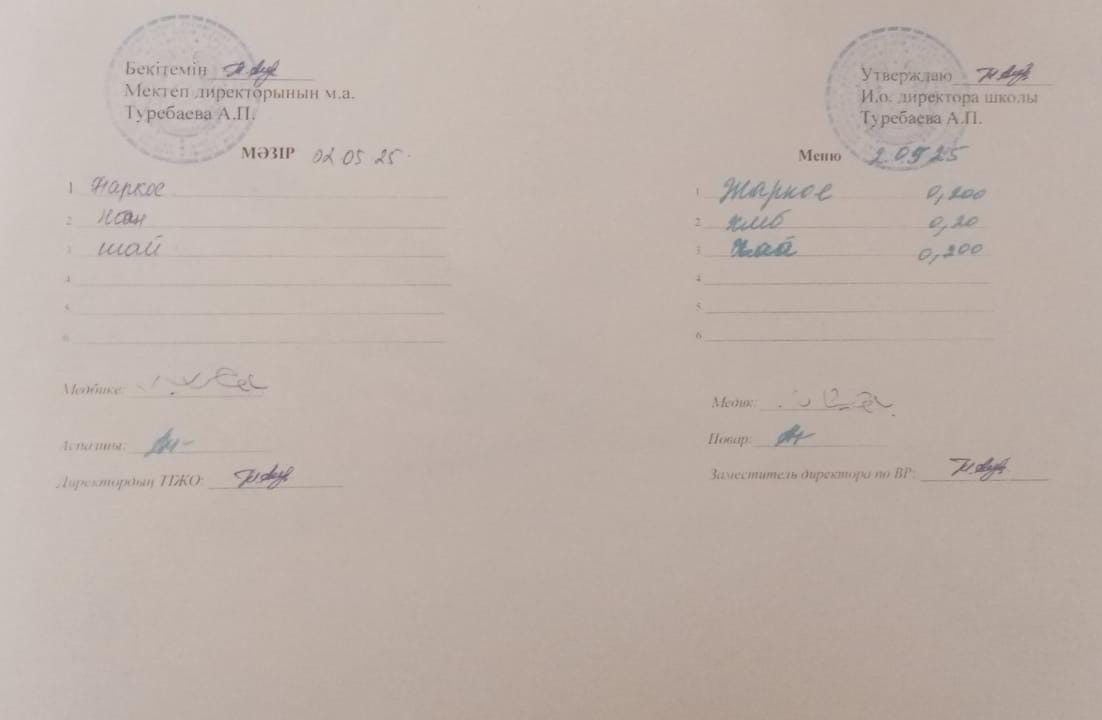 Бекітемін
Мектеп директорынын м.а.
Туребаева А.П.
МӘЗІР 02 05 25.
1 Жаркое
2 нан
3 шай
4
5
6
Медбике:
Аспазшы:
Директордың ТІЖО:
Утверждаю
И.о. директора школы
Туребаева А.П.
Меню 2.05 25
1 Жаркое 0,200
2 хлеб 0,20
3 Чай 0,200
4
5
6
Медик:
Повар:
Заместитель директора по ВР: